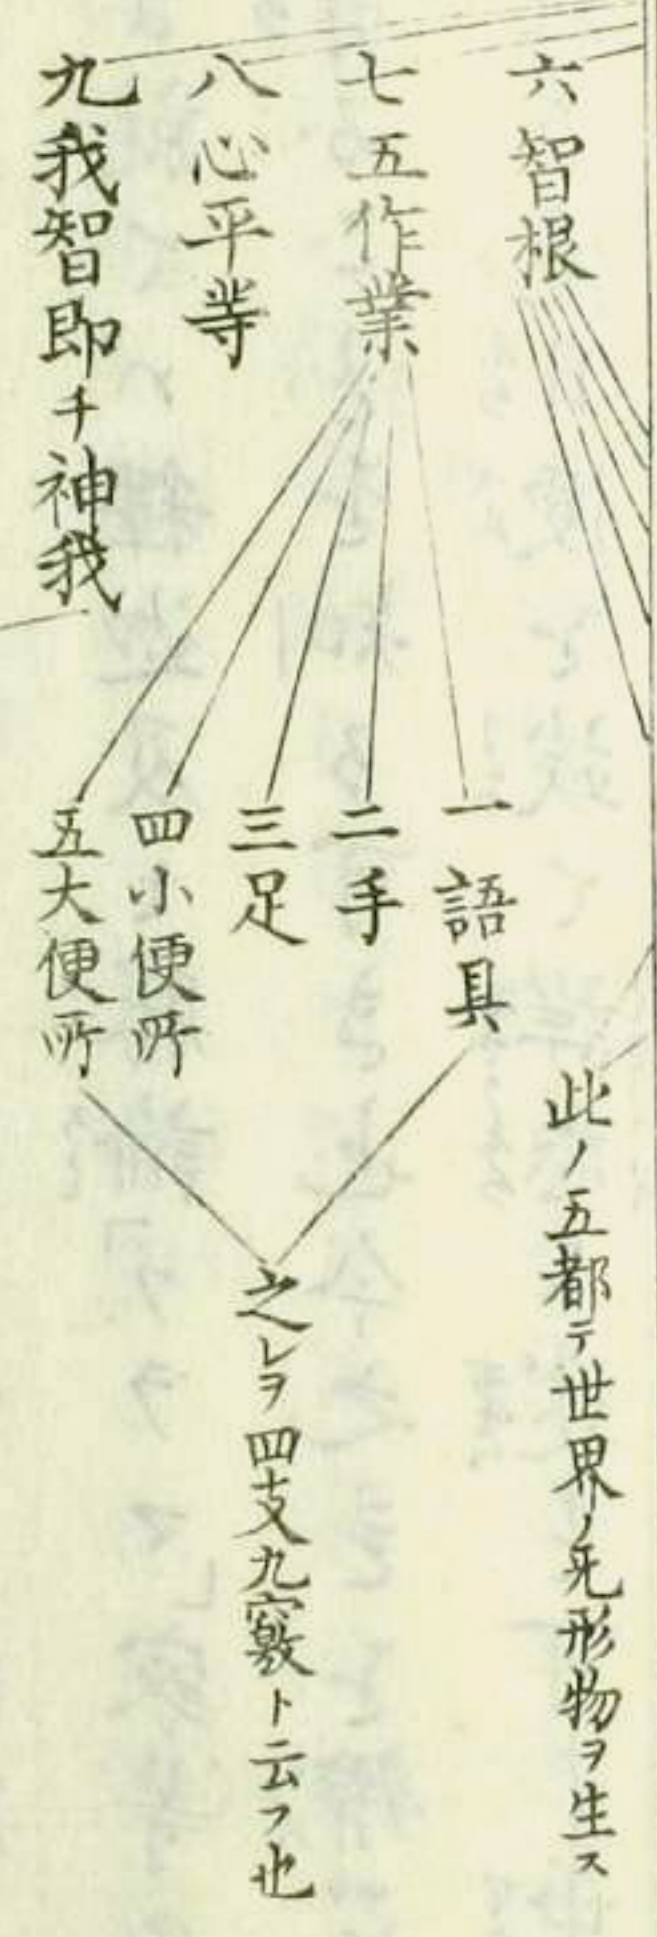 六智根
此ノ五都テ世界ノ死形物ヲ生ス
七五作業
一語具
二手
三足
四小便所
五大便所
之レヲ四支九竅ト云フ也
八心平等
九我智即チ神我